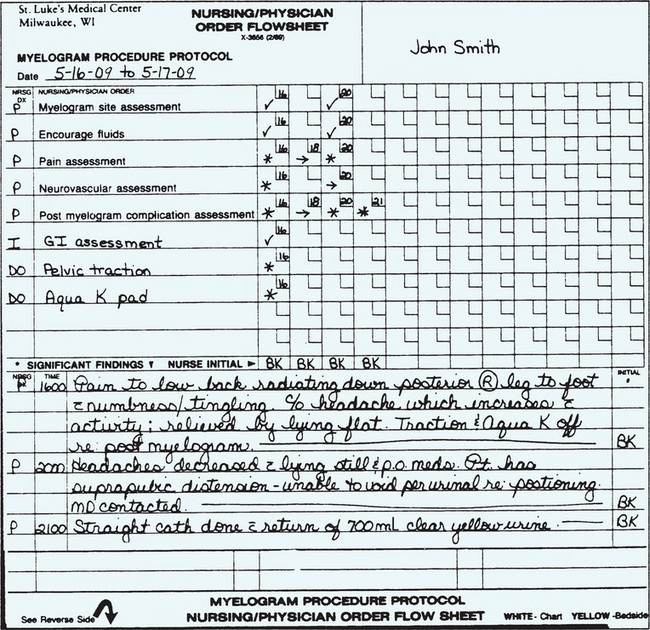 St. Luke's Medical Center
Milwaukee, WI
NURSING/PHYSICIAN
ORDER FLOWSHEET
X-3656 (2/89)
John Smith
MYELOGRAM PROCEDURE PROTOCOL
Date 5-16-09 to 5-17-09
NRSG DX NURSING/PHYSICIAN ORDER
P Myelogram site assessment ✓ 16 ✓ 20
P Encourage fluids ✓ 16 ✓ 20
P Pain assessment * 16 → 18 * 20
P Neurovascular assessment * 16 → 20
P Post myelogram complication assessment * 16 → 18 * 20 * 21
I GI assessment ✓ 16
DO Pelvic traction * 16
DO Aqua K pad * 16
* SIGNIFICANT FINDINGS NURSE INITIAL ► BK BK BK BK
NRSG TIME INITIAL
P 1600 Pain to low back radiating down posterior Ⓡ leg to foot
c̄ numbness/tingling. C/o headache which increases c̄
activity; relieved by lying flat. Traction & Aqua K off
re: post myelogram. BK
P 2000 Headaches decreased c̄ lying still & p.o. meds. Pt. has
suprapubic distension - unable to void per urinal re: postioning.
MD contacted. BK
P 2100 Straight cath done c̄ return of 700 mL clear yellow urine. BK
See Reverse Side
MYELOGRAM PROCEDURE PROTOCOL
NURSING/PHYSICIAN ORDER FLOW SHEET
WHITE - Chart YELLOW - Bedside